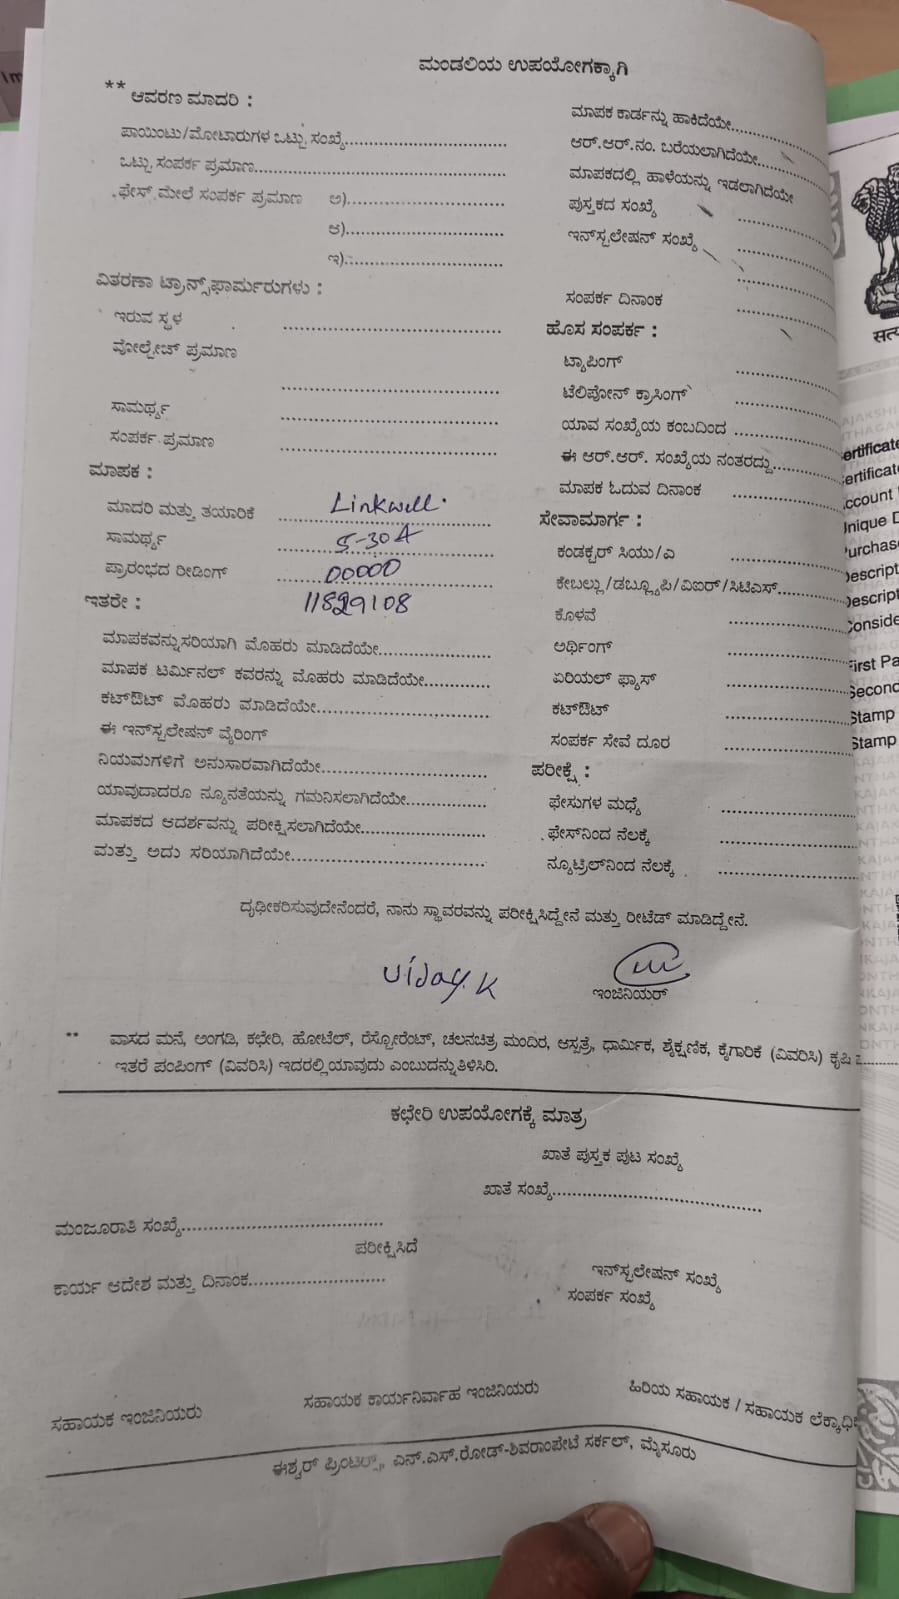 ಮಂಡಲಿಯ ಉಪಯೋಗಕ್ಕಾಗಿ
** ಆವರಣ ಮಾದರಿ :
ಪಾಯಿಂಟು/ಮೋಟಾರುಗಳ ಒಟ್ಟು ಸಂಖ್ಯೆ
ಒಟ್ಟು ಸಂಪರ್ಕ ಪ್ರಮಾಣ
ಫೇಸ್ ಮೇಲೆ ಸಂಪರ್ಕ ಪ್ರಮಾಣ ಅ)
ಆ)
ಇ)
ವಿತರಣಾ ಟ್ರಾನ್ಸ್‌ಫಾರ್ಮರುಗಳು :
ಇರುವ ಸ್ಥಳ
ವೋಲ್ಟೇಜ್ ಪ್ರಮಾಣ
ಸಾಮರ್ಥ್ಯ
ಸಂಪರ್ಕ ಪ್ರಮಾಣ
ಮಾಪಕ :
ಮಾದರಿ ಮತ್ತು ತಯಾರಿಕೆ Linkwell.
ಸಾಮರ್ಥ್ಯ 5-30A
ಪ್ರಾರಂಭದ ರೀಡಿಂಗ್ 00000
ಇತರೇ :
ಮಾಪಕವನ್ನು ಸರಿಯಾಗಿ ಮೊಹರು ಮಾಡಿದೆಯೇ
ಮಾಪಕ ಟರ್ಮಿನಲ್ ಕವರನ್ನು ಮೊಹರು ಮಾಡಿದೆಯೇ
ಕಟ್‌ಔಟ್ ಮೊಹರು ಮಾಡಿದೆಯೇ
ಈ ಇನ್‌ಸ್ಟಲೇಷನ್ ವೈರಿಂಗ್
ನಿಯಮಗಳಿಗೆ ಅನುಸಾರವಾಗಿದೆಯೇ
ಯಾವುದಾದರೂ ನ್ಯೂನತೆಯನ್ನು ಗಮನಿಸಲಾಗಿದೆಯೇ
ಮಾಪಕದ ಆದರ್ಶವನ್ನು ಪರೀಕ್ಷಿಸಲಾಗಿದೆಯೇ
ಮತ್ತು ಅದು ಸರಿಯಾಗಿದೆಯೇ
ಮಾಪಕ ಕಾರ್ಡನ್ನು ಹಾಕಿದೆಯೇ
ಆರ್.ಆರ್.ನಂ. ಬರೆಯಲಾಗಿದೆಯೇ
ಮಾಪಕದಲ್ಲಿ ಹಾಳೆಯನ್ನು ಇಡಲಾಗಿದೆಯೇ
ಪುಸ್ತಕದ ಸಂಖ್ಯೆ
ಇನ್‌ಸ್ಟಲೇಷನ್ ಸಂಖ್ಯೆ
ಸಂಪರ್ಕ ದಿನಾಂಕ
ಹೊಸ ಸಂಪರ್ಕ :
ಟ್ಯಾಪಿಂಗ್
ಟೆಲಿಪೋನ್ ಕ್ರಾಸಿಂಗ್
ಯಾವ ಸಂಖ್ಯೆಯ ಕಂಬದಿಂದ
ಈ ಆರ್.ಆರ್. ಸಂಖ್ಯೆಯ ನಂತರದ್ದು
ಮಾಪಕ ಓದುವ ದಿನಾಂಕ
ಸೇವಾಮಾರ್ಗ :
ಕಂಡಕ್ಟರ್ ಸಿಯು/ಎ
ಕೇಬಲ್ಲು/ಡಬ್ಲ್ಯೂಪಿ/ವಿಐಆರ್/ಸಿಟಿಎಸ್
ಕೊಳವೆ
ಅರ್ಥಿಂಗ್
ಏರಿಯಲ್ ಫ್ಯೂಸ್
ಕಟ್‌ಔಟ್
ಸಂಪರ್ಕ ಸೇವೆ ದೂರ
ಪರೀಕ್ಷೆ :
ಫೇಸುಗಳ ಮಧ್ಯೆ
ಫೇಸ್‌ನಿಂದ ನೆಲಕ್ಕೆ
ನ್ಯೂಟ್ರಲ್‌ನಿಂದ ನೆಲಕ್ಕೆ
ದೃಢೀಕರಿಸುವುದೇನೆಂದರೆ, ನಾನು ಸ್ಥಾವರವನ್ನು ಪರೀಕ್ಷಿಸಿದ್ದೇನೆ ಮತ್ತು ರೀಟೆಡ್ ಮಾಡಿದ್ದೇನೆ.
Vijay.K
ಇಂಜಿನಿಯರ್
** ವಾಸದ ಮನೆ, ಅಂಗಡಿ, ಕಛೇರಿ, ಹೋಟೆಲ್, ರೆಸ್ಟೋರೆಂಟ್, ಚಲನಚಿತ್ರ ಮಂದಿರ, ಆಸ್ಪತ್ರೆ, ಧಾರ್ಮಿಕ, ಶೈಕ್ಷಣಿಕ, ಕೈಗಾರಿಕೆ (ವಿವರಿಸಿ) ಕೃಷಿ
ಇತರೆ ಪಂಪಿಂಗ್ (ವಿವರಿಸಿ) ಇದರಲ್ಲಿ ಯಾವುದು ಎಂಬುದನ್ನು ತಿಳಿಸಿರಿ.
ಕಛೇರಿ ಉಪಯೋಗಕ್ಕೆ ಮಾತ್ರ
ಖಾತೆ ಪುಸ್ತಕ ಪುಟ ಸಂಖ್ಯೆ
ಖಾತೆ ಸಂಖ್ಯೆ
ಮಂಜೂರಾತಿ ಸಂಖ್ಯೆ
ಪರೀಕ್ಷಿಸಿದೆ
ಕಾರ್ಯ ಆದೇಶ ಮತ್ತು ದಿನಾಂಕ
ಇನ್‌ಸ್ಟಲೇಷನ್ ಸಂಖ್ಯೆ
ಸಂಪರ್ಕ ಸಂಖ್ಯೆ
ಸಹಾಯಕ ಇಂಜಿನಿಯರು
ಸಹಾಯಕ ಕಾರ್ಯನಿರ್ವಾಹ ಇಂಜಿನಿಯರು
ಹಿರಿಯ ಸಹಾಯಕ / ಸಹಾಯಕ
ಈಶ್ವರ್ ಪ್ರಿಂಟರ್ಸ್, ಎನ್.ಎಸ್.ರೋಡ್-ಶಿವರಾಂಪೇಟೆ ಸರ್ಕಲ್, ಮೈಸೂರು